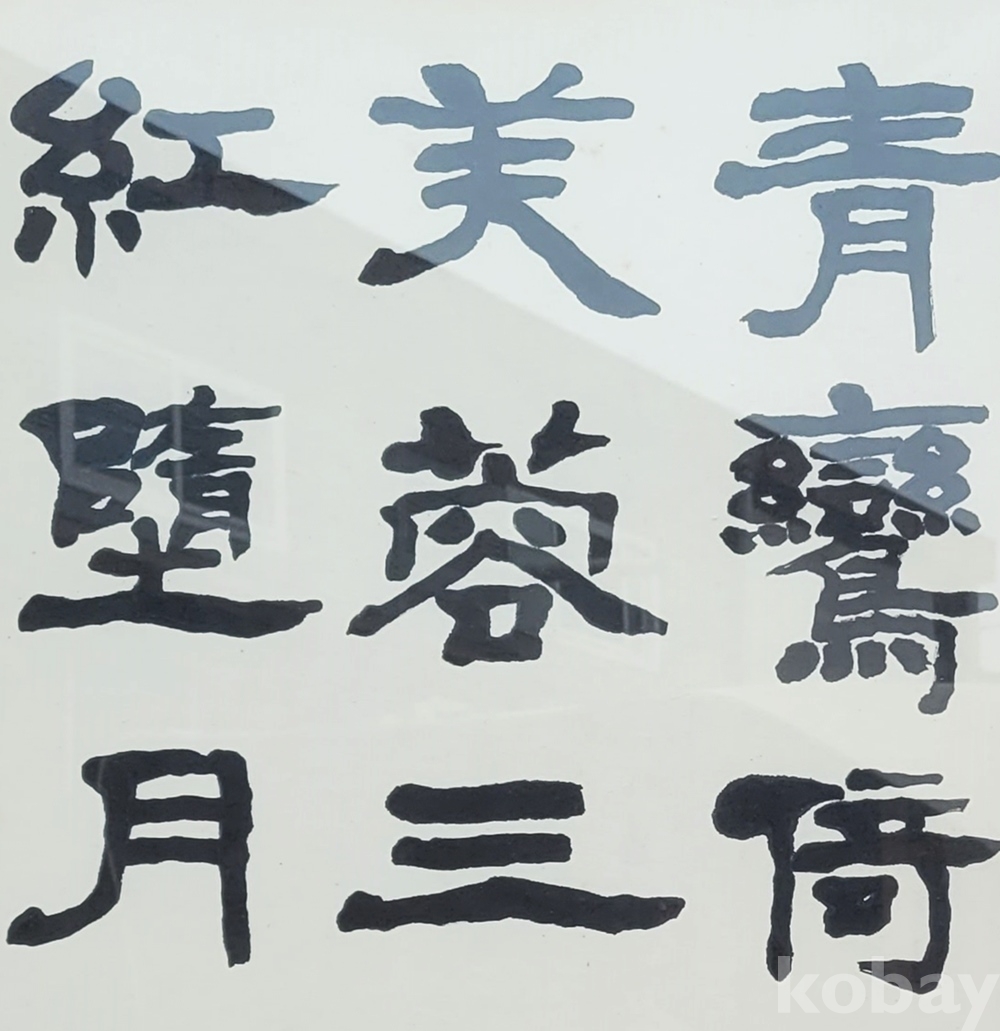 青鸞倚
芙蓉三
紅墮月
kobay